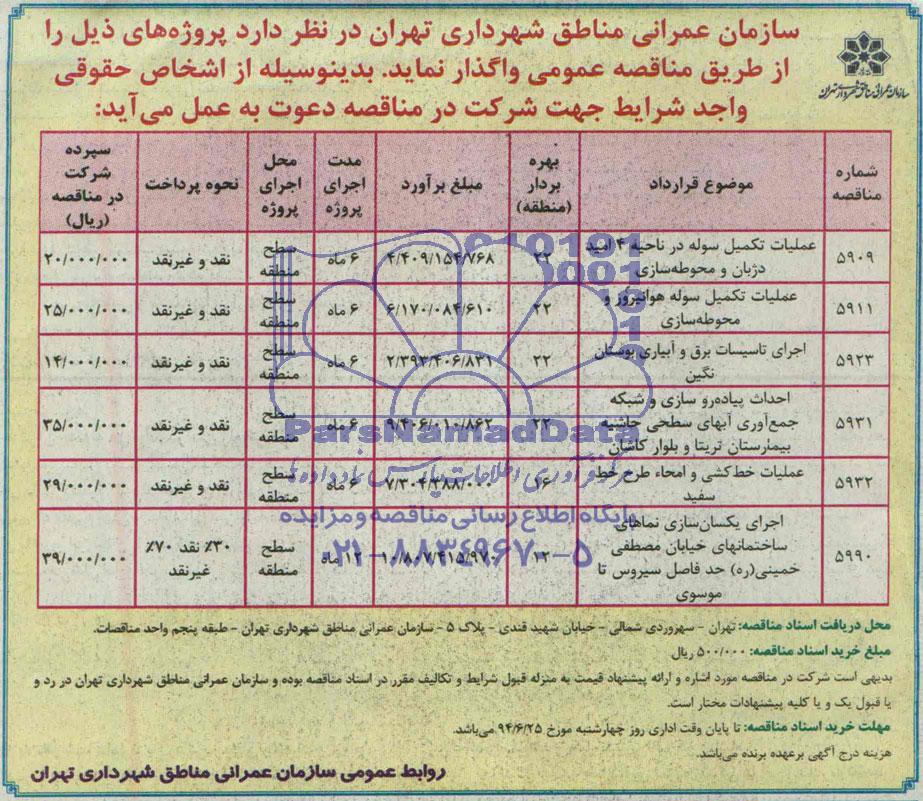 سازمان عمرانی مناطق شهرداری تهران در نظر دارد پروژه‌های ذیل را
از طریق مناقصه عمومی واگذار نماید. بدینوسیله از اشخاص حقوقی
واجد شرایط جهت شرکت در مناقصه دعوت به عمل می‌آید:
سازمان عمرانی مناطق شهرداری تهران
شماره مناقصه | موضوع قرارداد | بهره بردار (منطقه) | مبلغ برآورد | مدت اجرای پروژه | محل اجرای پروژه | نحوه پرداخت | سپرده شرکت در مناقصه (ریال)
۵۹۰۹ | عملیات تکمیل سوله در ناحیه ۴ امید دژبان و محوطه‌سازی | ۲۲ | ۴/۴۰۹/۱۵۴/۷۶۸ | ۶ ماه | سطح منطقه | نقد و غیرنقد | ۲۰/۰۰۰/۰۰۰
۵۹۱۱ | عملیات تکمیل سوله هوانیروز و محوطه‌سازی | ۲۲ | ۶/۱۷۰/۰۸۴/۶۱۰ | ۶ ماه | سطح منطقه | نقد و غیرنقد | ۲۵/۰۰۰/۰۰۰
۵۹۲۳ | اجرای تاسیسات برق و آبیاری بوستان نگین | ۲۲ | ۲/۳۹۳/۴۰۶/۸۳۱ | ۶ ماه | سطح منطقه | نقد و غیرنقد | ۱۴/۰۰۰/۰۰۰
۵۹۳۱ | احداث پیاده‌رو سازی و شبکه جمع‌آوری آبهای سطحی حاشیه بیمارستان تریتا و بلوار کاشان | ۲۲ | ۹/۴۰۶/۰۱۰/۸۶۲ | ۶ ماه | سطح منطقه | نقد و غیرنقد | ۳۵/۰۰۰/۰۰۰
۵۹۳۲ | عملیات خط‌کشی و امحاء طرح خط سفید | ۱۶ | ۷/۳۰۴/۳۸۸/۰۰۰ | ۶ ماه | سطح منطقه | نقد و غیرنقد | ۲۹/۰۰۰/۰۰۰
۵۹۹۰ | اجرای یکسان‌سازی نماهای ساختمانهای خیابان مصطفی خمینی(ره) حد فاصل سیروس تا موسوی | ۱۲ | ۱۰/۸۰۷/۴۱۵/۹۷۰ | ۱۲ ماه | سطح منطقه | ۳۰٪ نقد ۷۰٪ غیرنقد | ۳۹/۰۰۰/۰۰۰
ParsNamadData
مرکز فرآوری اطلاعات پارس نماد داده‌ها
پایگاه اطلاع رسانی مناقصه و مزایده
۰۲۱-۸۸۳۴۹۶۷۰-۵
محل دریافت اسناد مناقصه: تهران - سهروردی شمالی - خیابان شهید قندی - پلاک ۵ - سازمان عمرانی مناطق شهرداری تهران - طبقه پنجم واحد مناقصات.
مبلغ خرید اسناد مناقصه: ۵۰۰/۰۰۰ ریال
بدیهی است شرکت در مناقصه مورد اشاره و ارائه پیشنهاد قیمت به منزله قبول شرایط و تکالیف مقرر در اسناد مناقصه بوده و سازمان عمرانی مناطق شهرداری تهران در رد و
یا قبول یک و یا کلیه پیشنهادات مختار است.
مهلت خرید اسناد مناقصه: تا پایان وقت اداری روز چهارشنبه مورخ ۹۴/۶/۲۵ می‌باشد.
هزینه درج آگهی برعهده برنده می‌باشد.
روابط عمومی سازمان عمرانی مناطق شهرداری تهران